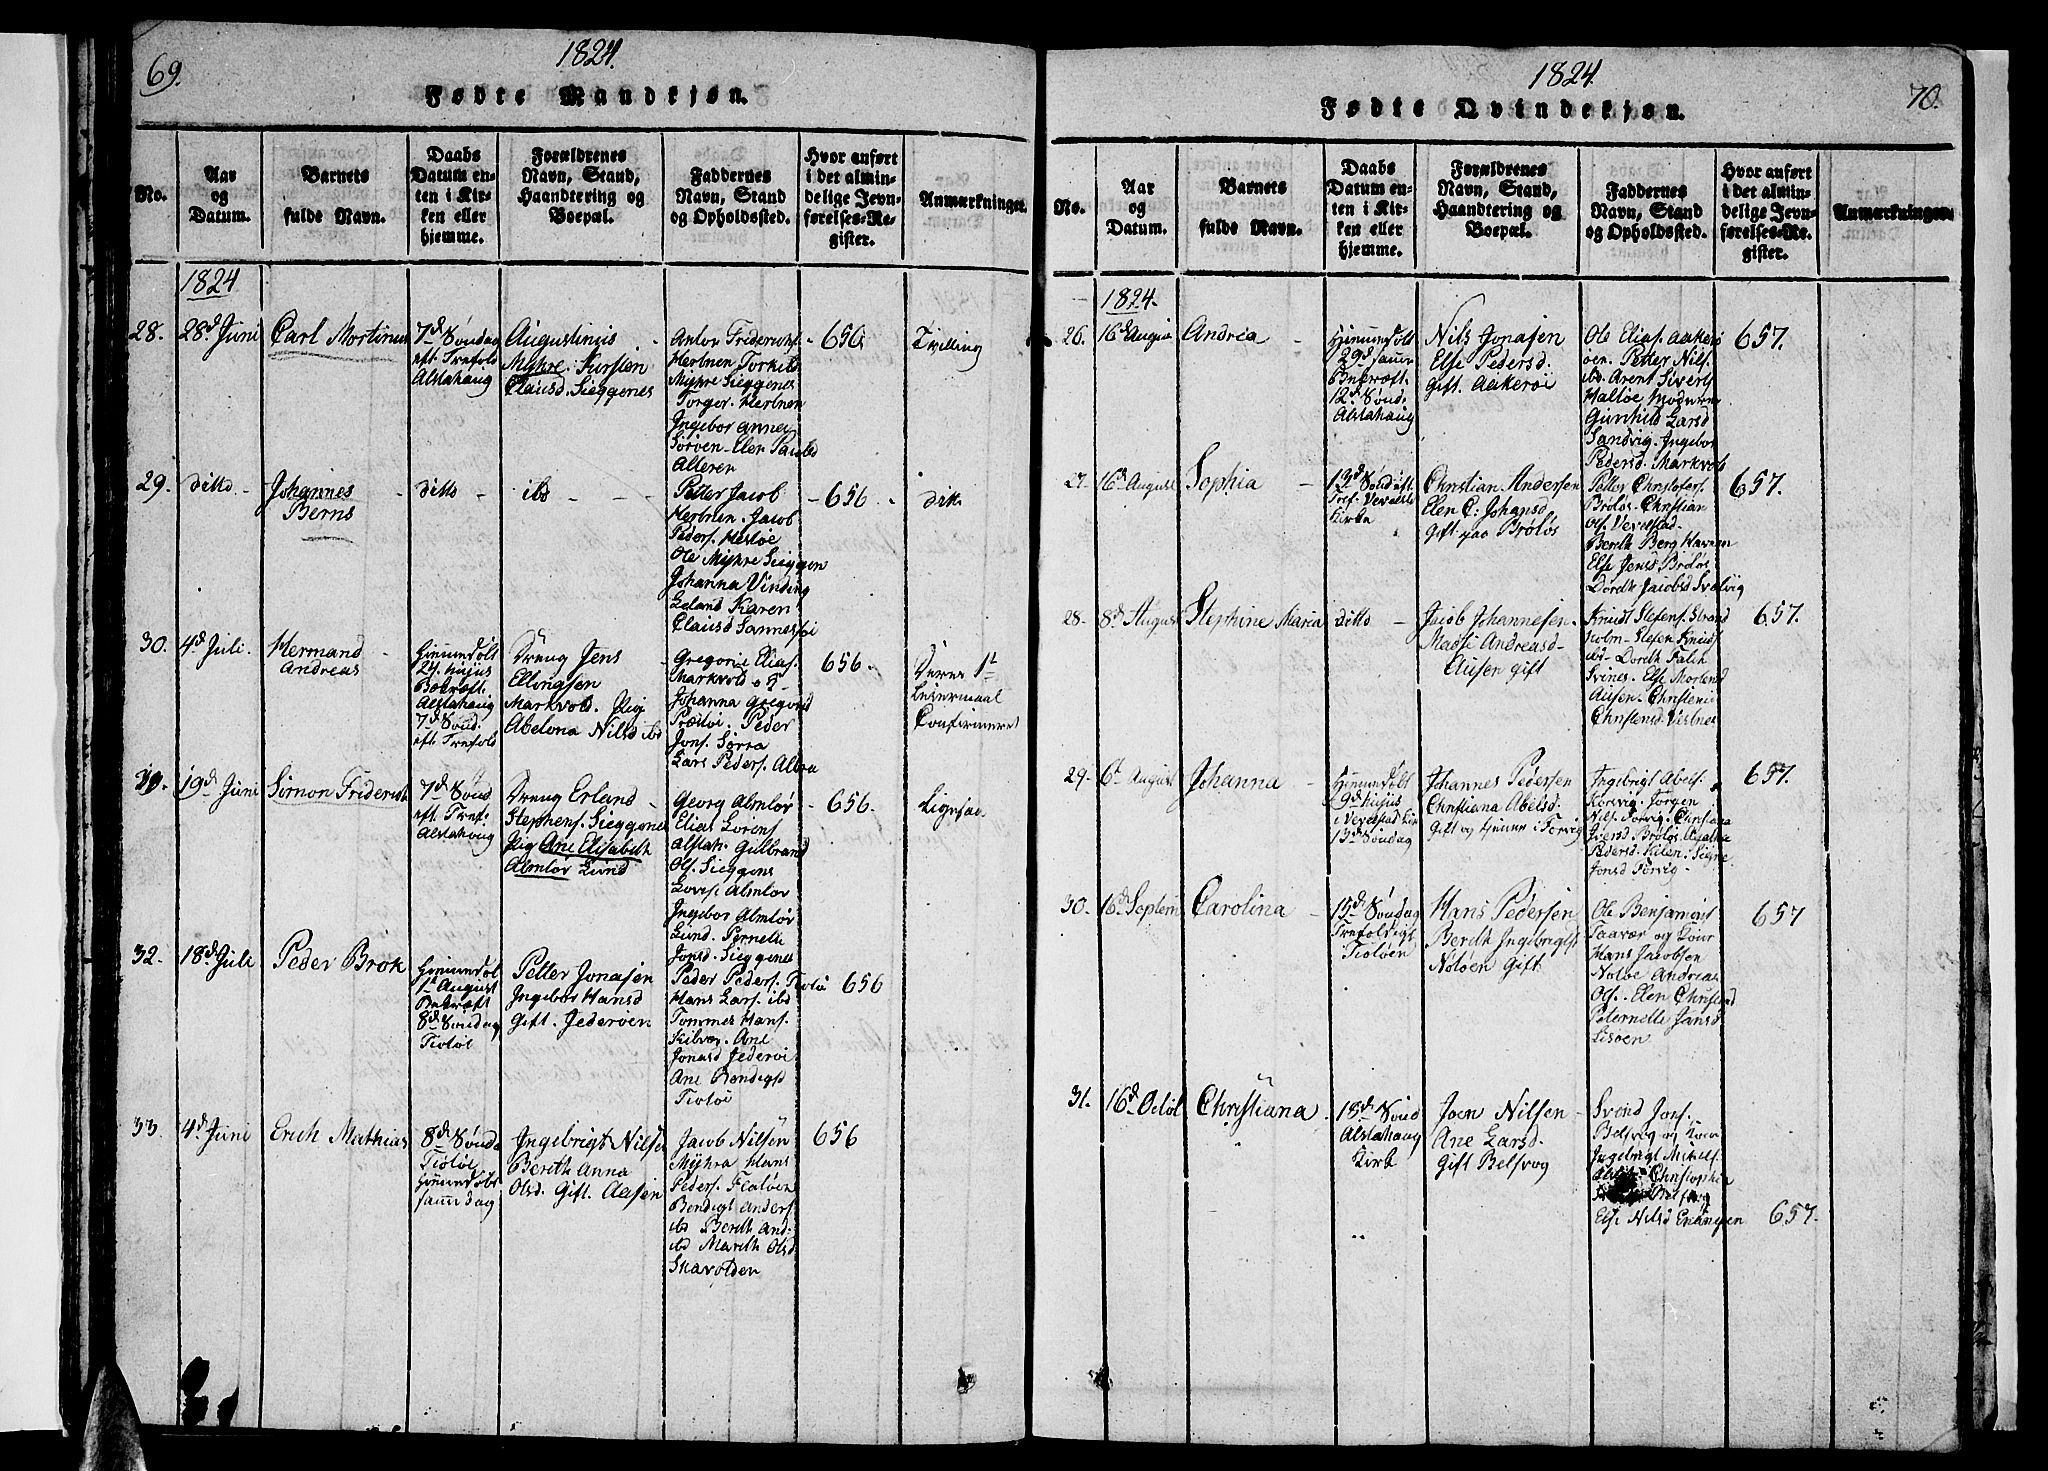 69.
1824.
Fødte Mandkjøn.
No.
Aar
og
Datum.
Barnets
fulde Navn.
Daabs
Datum en-
ten i Kir-
ken eller
hjemme.
Forældrenes
Navn, Stand,
Haandtering og
Boepæl.
Faddernes
Navn, Stand
og Opholdssted.
Hvor anført
i det almin-
delige Jevn-
førelses-Re-
gister.
Anmærkninger.
1824
28.
28d Juni
Carl Mortinus
7d Søndag
eft. Trefold
Alstahaug
Augustinus
Myhre. Kirsten
Clausd. Sieggenes
Anton Friderichs.
Herbnen Torkild
Myhre Sieggenes
Torger. Herbnen
Ingebor Annes
Sørøen- Elen Paulsd
Alteren
656
Tvilling
29.
ditto
Johannes
Berns
ditto
ibd
Petter Jacob
Herbnen. Jacob
Peders. Hestøe
Ole Myhre Sieggen
Johanna Vinding
Leland Karen
Clausd Sannesøi
656
dito
30.
4d Juli
Hermand
Andreas
Hiemmedøbt
24. hujus
Bekræft.
Alstahaug
7d Sønd.
eft. Trefold
Dreng Jens
Ellingsen
Markvold. Pig
Abelona Nilsd ibd
Gregorie Elias.
Markvold
Johanna Gregorsd
Præstøi. Peder
Jons. Sørra
Lars Peders. Albra
656.
Deres 1t
Leiermaal
Confirmeret
31.
19d Juni
Simon Friderich
7d Sønd
eft. Tref.
Alstahaug
Dreng Erland
Stephens. Sieggenes
Pig Ane Elisabeth
Almløv Lund
Georg Almløv
Elias Lorens
Alstah. Gulbrand
Ols. Sieggens
Lovise Almløv
Ingebor Almløv
Lund. Pernelle
Jonsd. Sieggenes
656.
Ligesaa.
32.
18d Juli
Peder Brok
Hiemmedøbt
1t August
Bekræft
8d Søndag
Tiøtøi
Petter Jonasen
Ingebor Hansd
Gift. Jederøen
Peder Peders. Tiøtøi
Hans Lars. ibd
Tommes Hans.
Kilvær. Ane
Jonasd Jederøi
Ane Bendigtsd
Tiøtøi
656
33.
4d Juni
Erich Mathias
8d Sønda
Tiøtøi
Hiemmedøbt
samme dag
Ingebrigt Nilsen
Berith Anna
Olsd. Gift. Aasen
Jacob Nilsen
Myhra Hans
Peders. Flatøen
Bendigt Anders
ibd Berith And.
ibd Marith Olsd
Skavolden
656
70.
1824.
Fødte Qvindekjøn.
No.
Aar
og
Datum.
Barnets
fulde Navn.
Daabs
Datum en-
ten i Kir-
ken eller
hjemme.
Forældrenes
Navn, Stand,
Haandtering og
Boepæl.
Faddernes
Navn, Stand
og Opholdssted.
Hvor anført
i det almin-
delige Jevn-
førelses-Re-
gister.
Anmærkninger.
1824.
26.
16d August
Andrea
Hiemmedøbt
29d samme
Bekræft.
12d Sønd.
Alstahaug
Nils Jonasen
Else Pedersd.
Gift. Aakerøi
Ole Elias. Aakerø
øen. Petter Nils.
ibd. Arent Sivers
Haltøe Moderen
Gunhild Larsd
Sandvig. Ingebor
Pedersd. Markvold
657.
27.
16d August
Sophia
13d Sønd eft
Tref. Vevelsta
Kirke
Christian Andersen
Elen C: Johansd
Gift paa Brøløs
Petter Christofers.
Brøløs- Christian
Ols. Vevelstad-
Berith Berg Havnen
Else Jensd Brøløs
Dordh Jacobsd Svalvig
657.
28.
8d August
Stephine Maria
ditto
Jacob Johannesen
Madsi Andreasd-
Ausen gift
Knudt Stefens. Strand
holm- Stefen Knuds
ibd- Dordh Falch
Svines. Else Mortensd
Ausen- Christence
Christensd- Vesnes
657.
29.
6t August
Johanna
Hiemmedøbt
9d hujus
i Vevelstad Kirk
13d Søndag
Johannes Pedersen
Christiana Abelsd.
Gift og hjemme i Forvig
Ingebrigt Abels.
Forvig- Jørgen
Nils. Forvig. Christiana
Iversd. Brøløs
Pedersd. Kilen. Signe
Jonsd Forvig.
657.
30.
16d Septem
Carolina
15d Søndag
Trefoldigt
Tiøtøen
Hans Pedersen
Berith Ingebrigtsd
Nøtøen Gift
Ole Benjamins.
Taavær og Kone
Hans Jacobsen
Nøtøe Andreas
Ols. Elen Christensd
Peternelle Jansd
Lisøen
657
31.
16d Octob
Christiana
18d Sønd
Alstahaug
Kirk
Joen Nilsen
Ane Larsd.
Gift Belsvog
Svend Jons.
Belsvog og Kone
Ingebrigt Mikels.
Christophia
Belsvog
Else Nilsd Enangen
657.